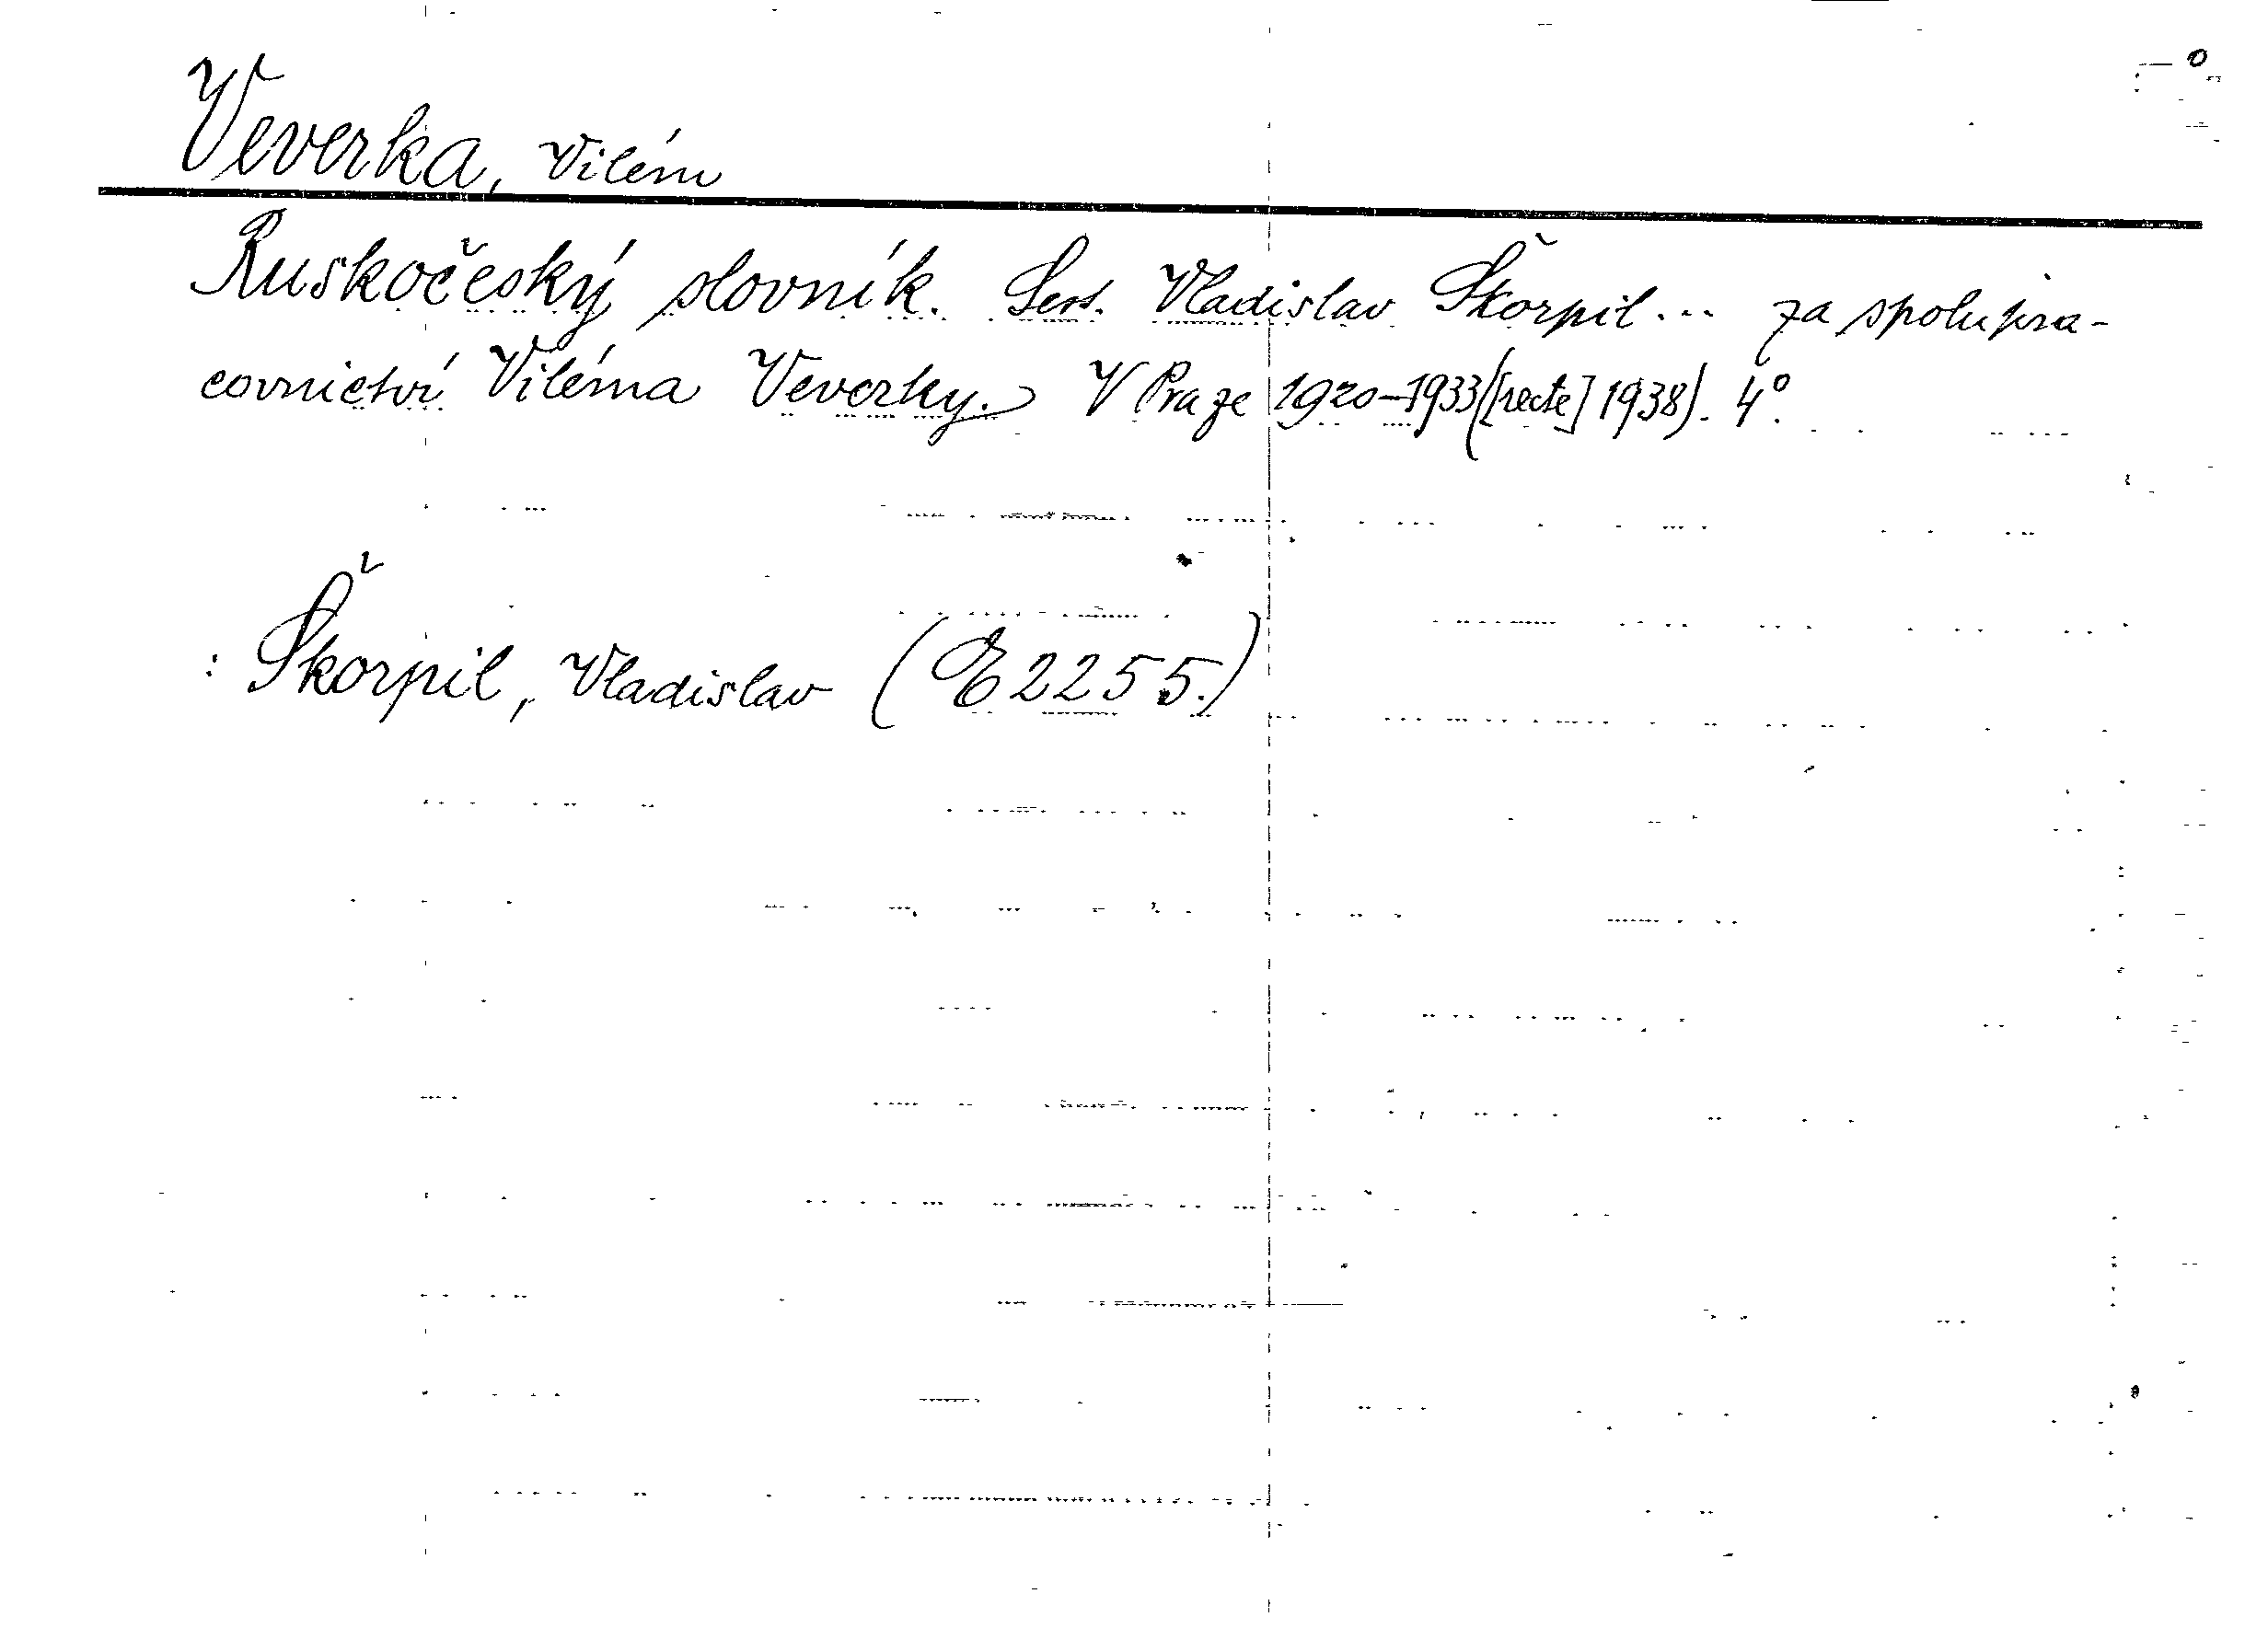 Veverka, Vilém
Ruskočeský slovník. Sest. Vladislav Škorpil... za spolupra-
covnictví Viléma Veverky. V Praze 1920-1933([recte] 1938). 4°.
: Škorpil, Vladislav (E 2255.)